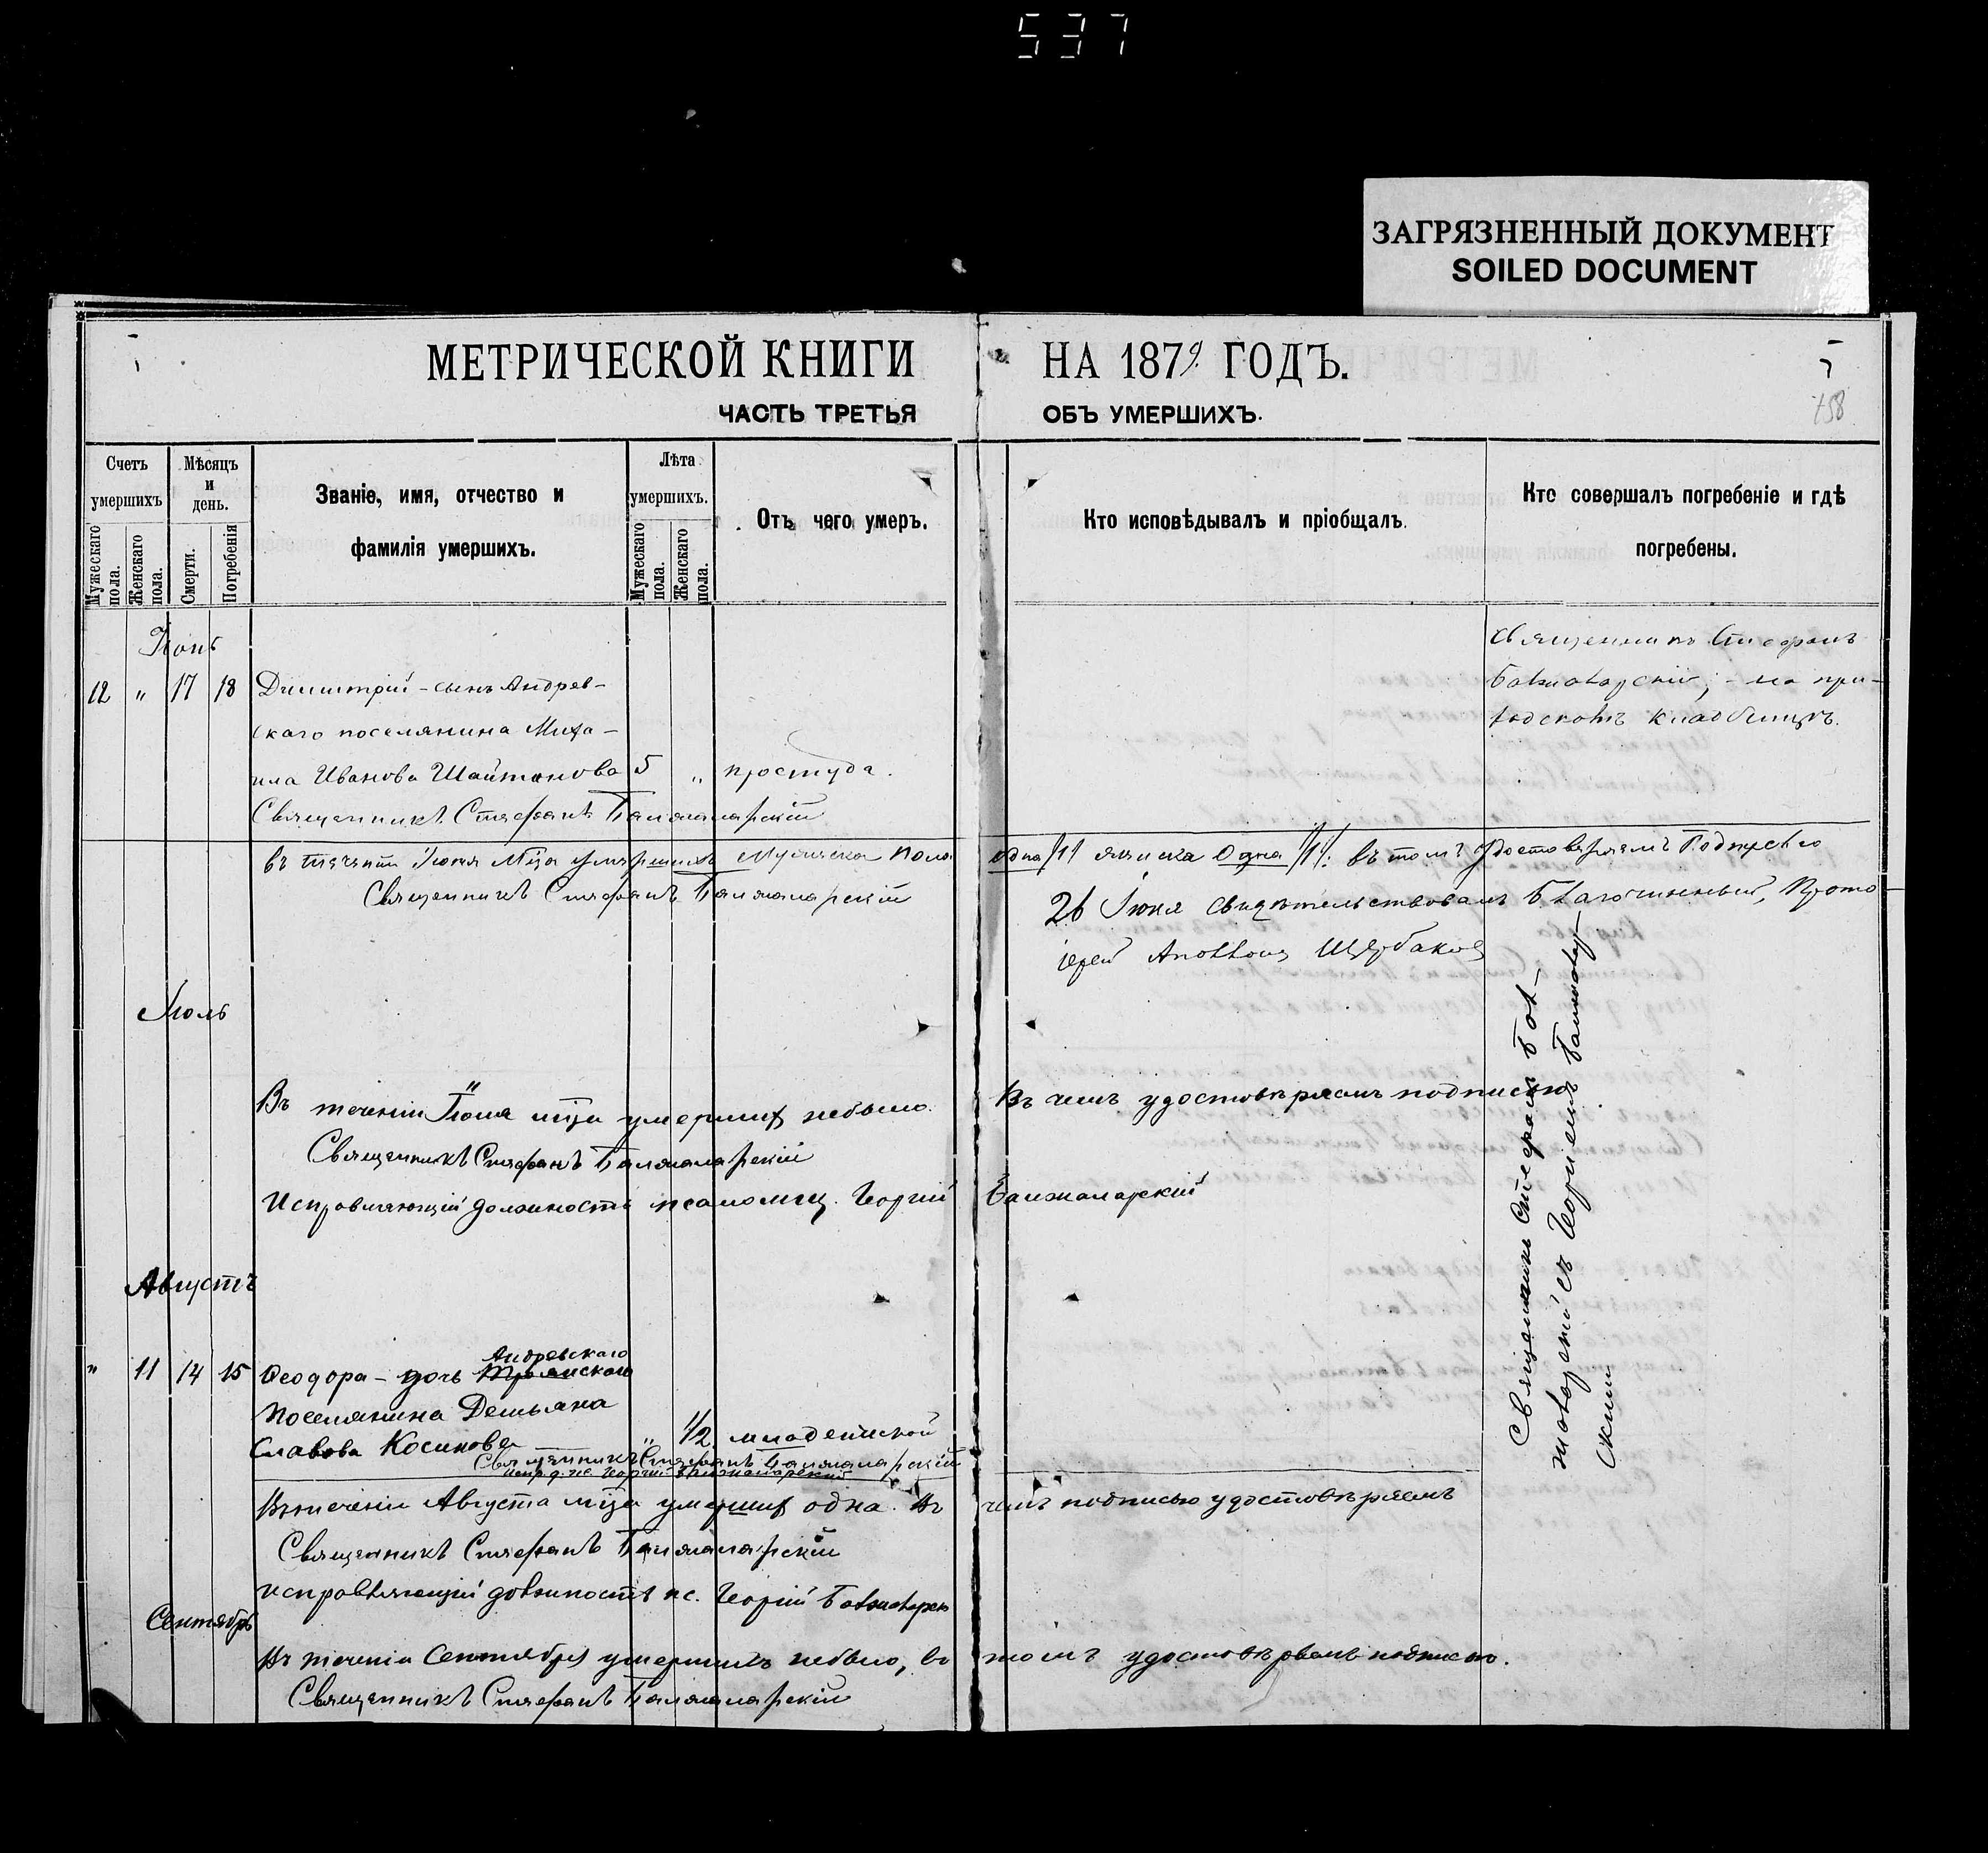 537
ЗАГРЯЗНЕННЫЙ ДОКУМЕНТ
SOILED DOCUMENT
МЕТРИЧЕСКОЙ КНИГИ НА 1879 ГОДЪ.
ЧАСТЬ ТРЕТЬЯ ОБЪ УМЕРШИХЪ.
758
Счетъ умершихъ
Мужескаго пола.
Женскаго пола.
Мѣсяцъ и день.
Смерти.
Погребенія
Званіе, имя, отчество и
фамилія умершихъ.
Лѣта умершихъ.
Мужескаго пола.
Женскаго пола.
Отъ чего умеръ.
Кто исповѣдывалъ и пріобщалъ.
Кто совершалъ погребеніе и гдѣ
погребены.
Іюнь
12 " 17 18 Димитрій - сынъ Андрев-
скаго поселянина Миха-
ила Иванова Шайтанова 5 " простуда.
Священникъ Стефанъ
Балжаларскій; - на при-
ходскомъ кладбищѣ.
Священникъ Стефанъ Балжаларскій
въ теченіи Іюня мца умершихъ мужеска пола одна /1/ женска одна /1/. въ томъ удостовѣряемъ Подписью
Священникъ Стефанъ Балжаларскій
26 Іюня свидѣтельствовалъ Благочинный, Прото
іерей Аполлонъ Щербаковъ
Іюль
Въ теченіи Іюля мца умершихъ небыло. Въ чемъ удостовѣряемъ подписью.
Священникъ Стефанъ Балжаларскій
Исправляющій должность псаломщ. Георгій Балжаларскій
Августъ
" 11 14 15 Ѳеодора - дочь Андревскаго
поселянина Демьяна
Славова Косинова " 1/2 младенческой
Священникъ Стефанъ Балжаларскій
испр. д. пс. Георгій Балжаларскій
Священникъ Стефанъ Бал-
жаларскій съ Георгіемъ Балжалар-
скимъ
Въ теченіи Августа мца умершихъ одна. Въ чемъ подписью удостовѣряемъ
Священникъ Стефанъ Балжаларскій
исправляющій должность пс. Георгій Балжаларск
Сентябрь
Въ теченіи Сентября умершихъ небыло, въ томъ удостовѣряемъ подписью.
Священникъ Стефанъ Балжаларскій